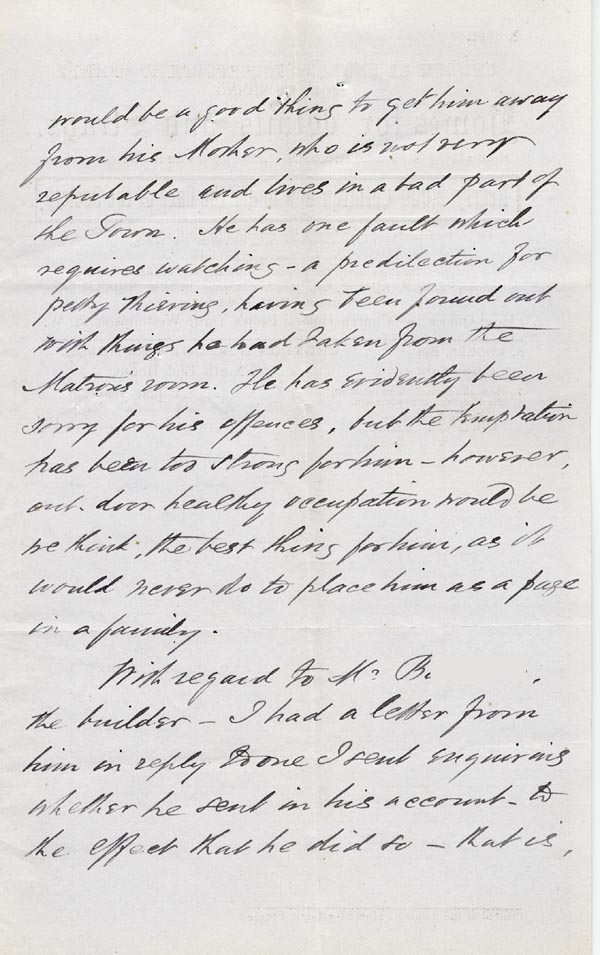 would be a good thing to get him away
from his Mother, who is not very
reputable and lives in a bad part of
the Town. He has one fault which
requires watching - a predilection for
petty thieving, having been found out
with things he had taken from the
Matrons room. He has evidently been
sorry for his offences, but the temptation
has been too strong for him - however,
out-door healthy occupation would be
we think, the best thing for him, as it
would never do to place him as a page
in a family.
With regard to Mr B.
the builder - I had a letter from
him in reply to one I sent enquiring
whether he sent in his account - to
the effect that he did so - that is,